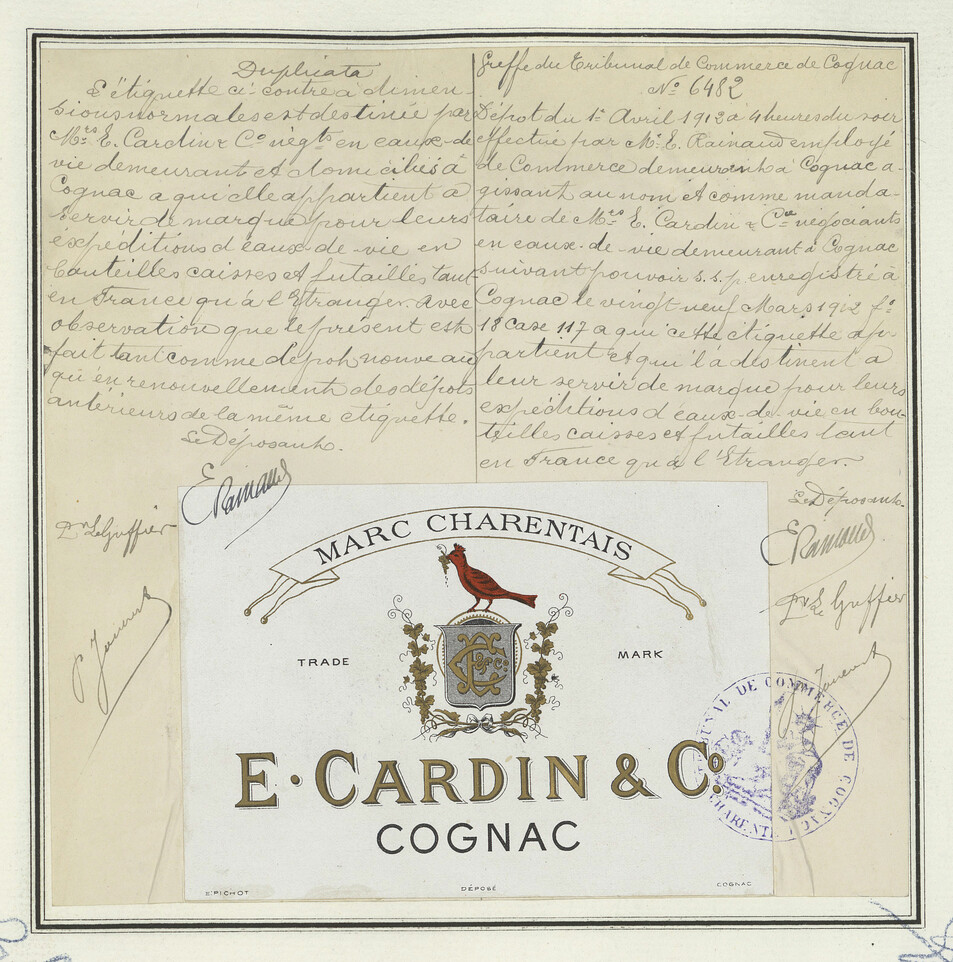 Duplicata
L'étiquette ci-contre à dimen-
sions normales est destinée par
Mrs E. Cardin & Co négts en eaux-de-
vie demeurant et domiciliés à
Cognac a qui elle appartient à
servir de marque pour leurs
expéditions d'eaux-de-vie en
bouteilles caisses et futailles tant
en France qu'à l'Etranger. Avec
observation que le présent est
fait tant comme dépôt nouveau
qu'en renouvellement des dépôts
antérieurs de la même étiquette.
Le Déposant.
E Rainaud
Pr Le Greffier
Greffe du Tribunal de Commerce de Cognac
No 6482
Dépot du 1er Avril 1912 à 4 heures du soir
effectué par Mr E. Rainaud employé
de Commerce demeurant à Cognac a-
gissant au nom et comme manda-
taire de Mrs E. Cardin & Cie négociants
en eaux-de-vie demeurant à Cognac
suivant pouvoir s.s.p. enregistré à
Cognac le vingt neuf Mars 1912 fo
18 Case 117 a qui cette étiquette ap-
partient et qu'il à destinent a
leur servir de marque pour leurs
expéditions d'eaux-de-vie en bou-
teilles caisses et futailles tant
en France qu'a l'Etranger.
Le Déposant.
E Rainaud
Pr Le Greffier
MARC CHARENTAIS
E C & Co
TRADE MARK
E. CARDIN & Co.
COGNAC
E. PICHOT DÉPOSÉ COGNAC
TRIBUNAL DE COMMERCE DE COGNAC
CHARENTE